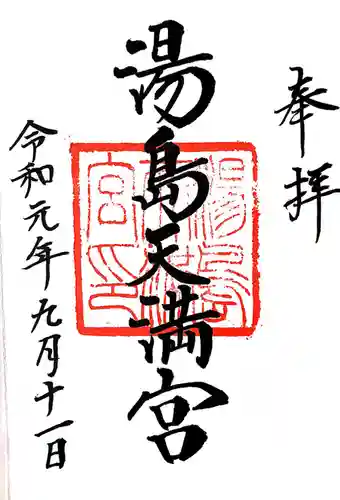 奉拝
湯島天満宮
令和元年九月十一日